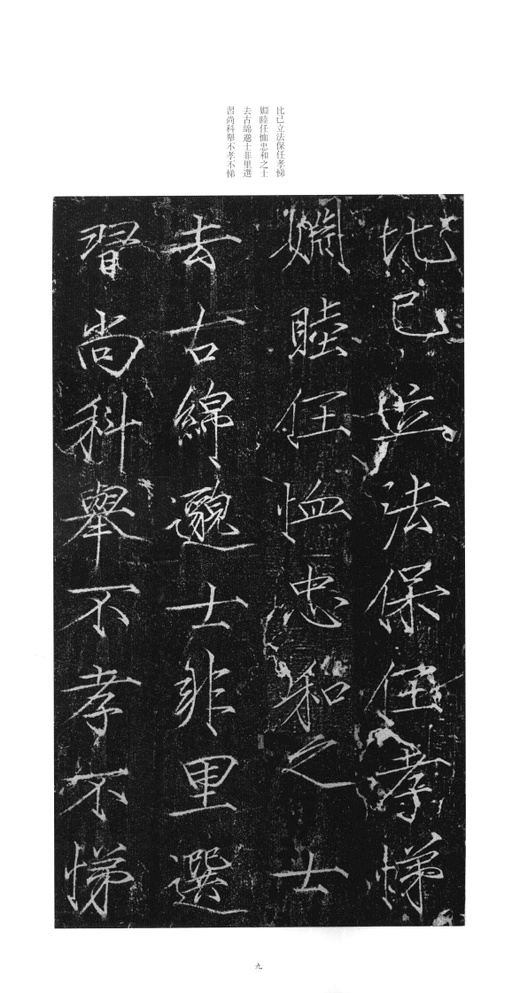 比已立法保任孝悌
婣睦任恤忠和之士
去古綿邈士非里選
習尚科舉不孝不悌
比已立法保任孝悌
婣睦任恤忠和之士
去古綿邈士非里選
習尚科舉不孝不悌
九